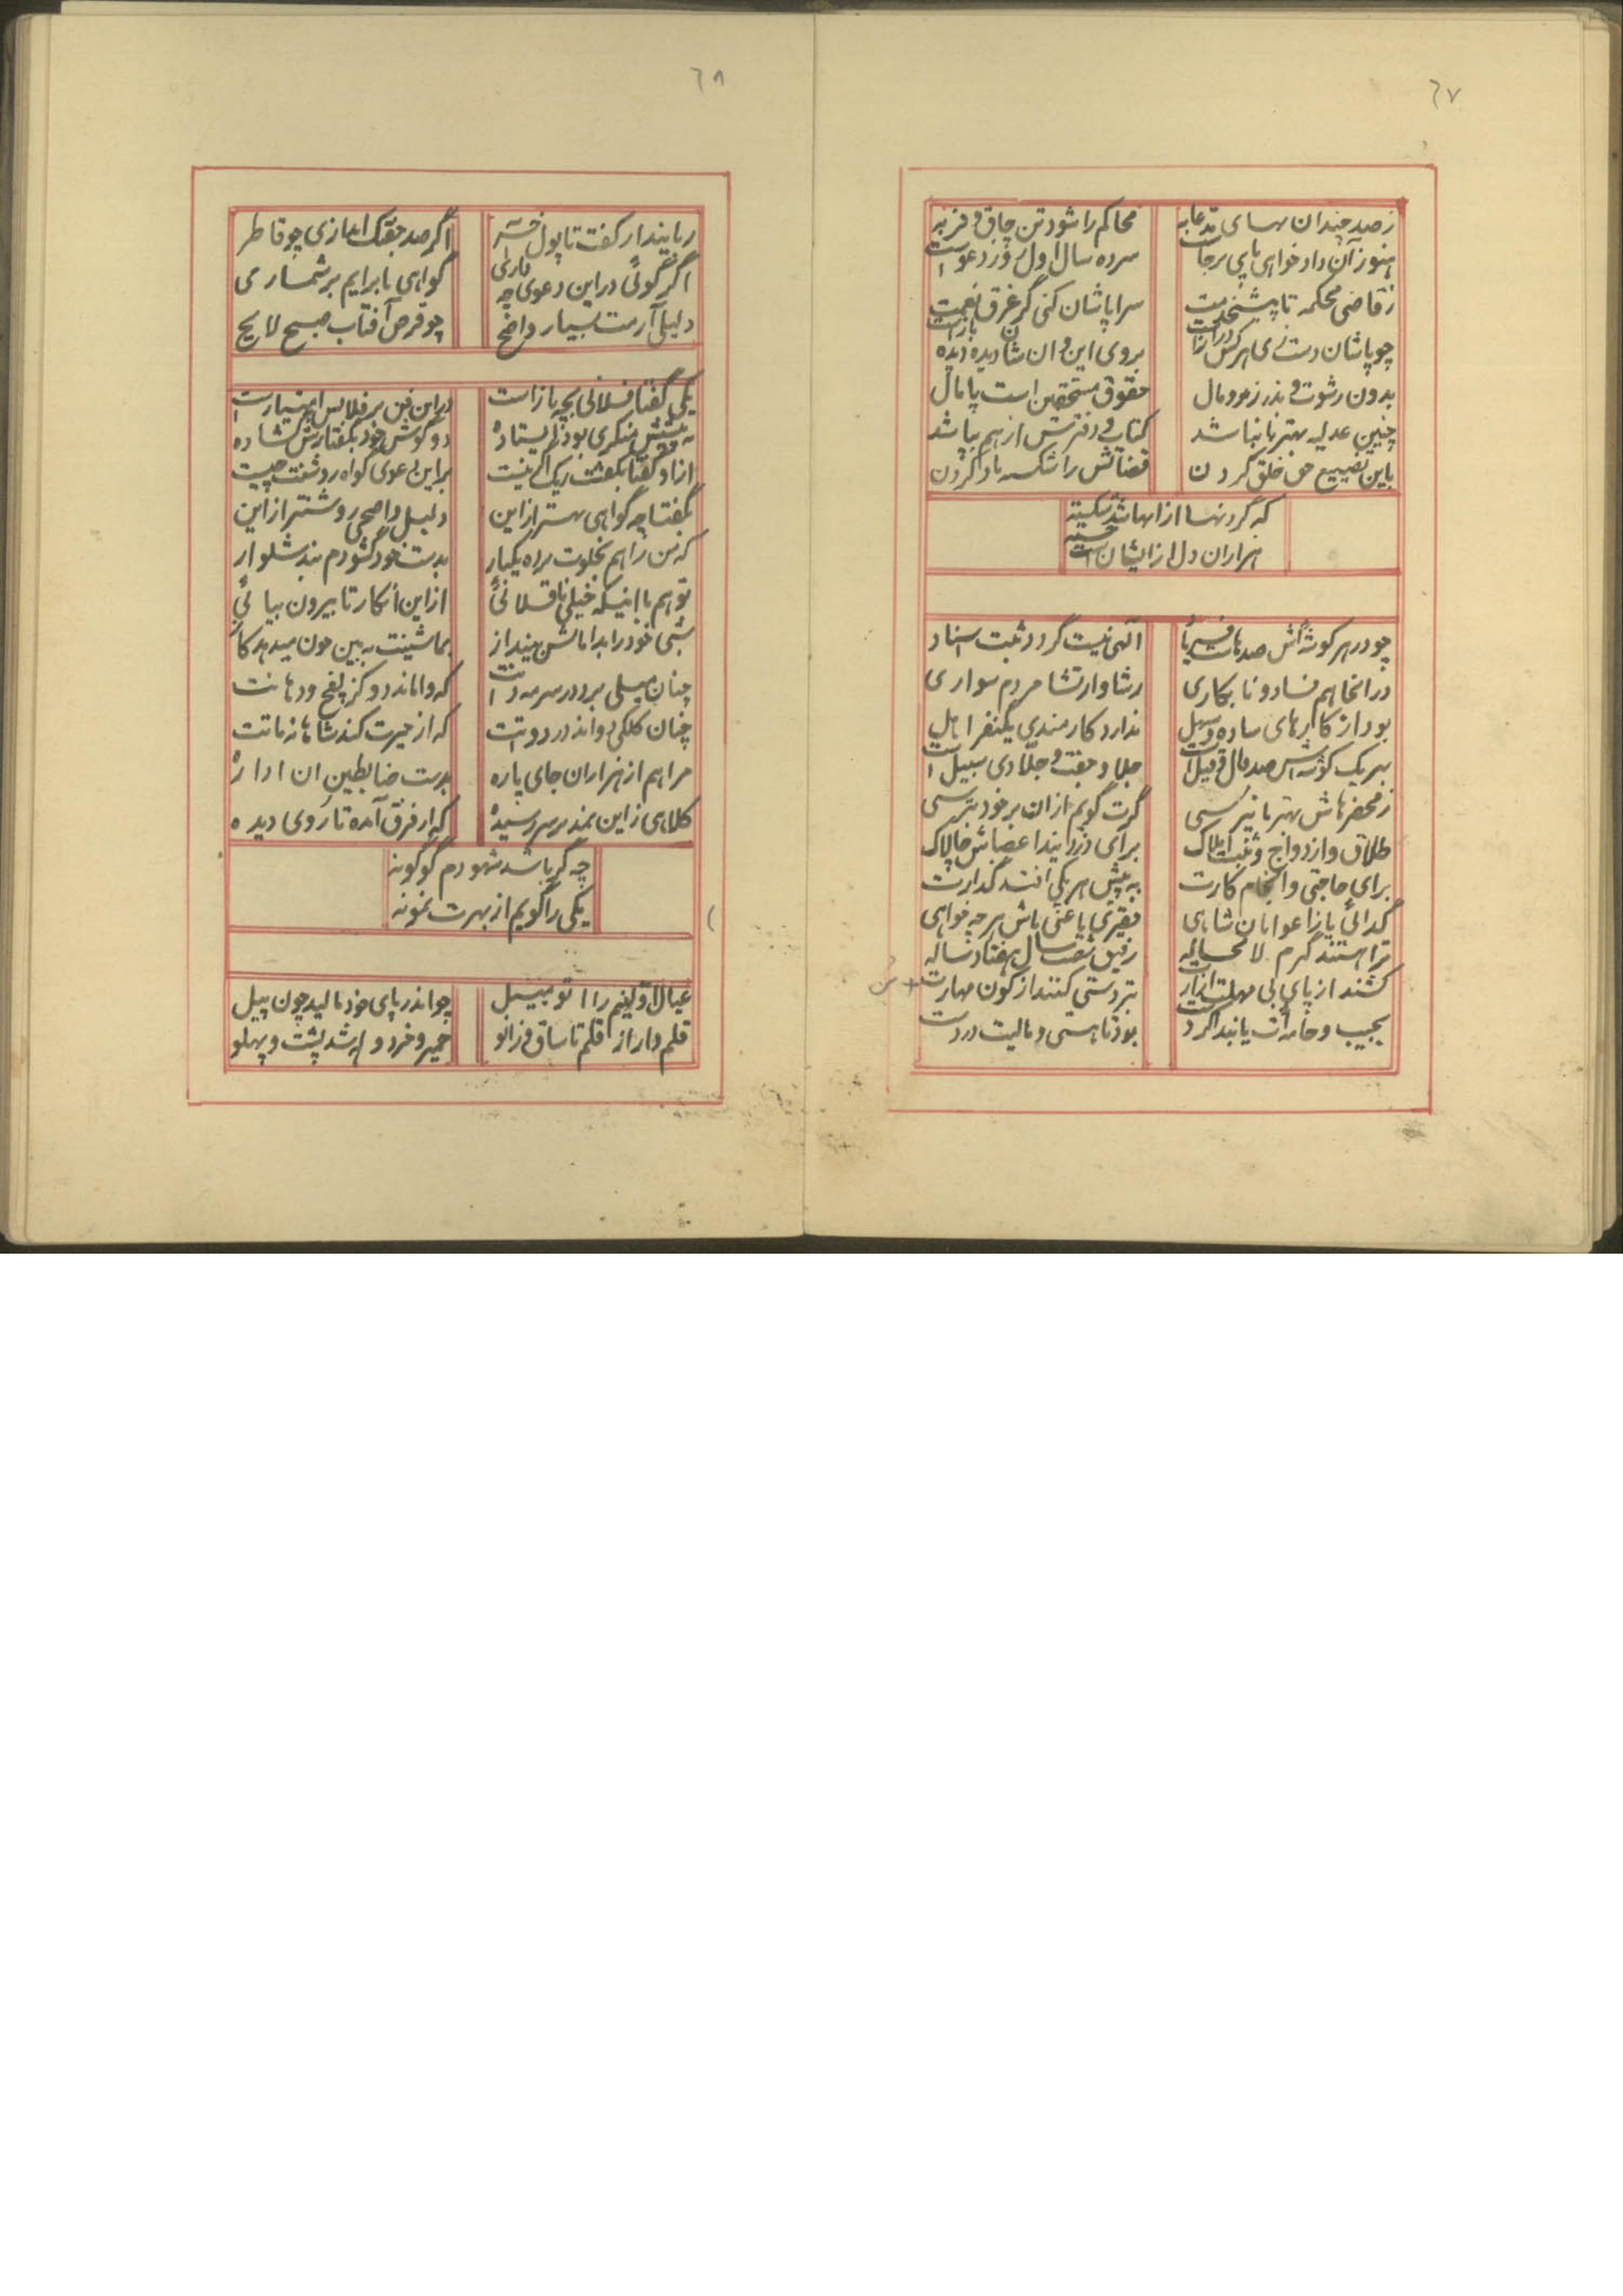 ٦٧
ز صد چندان بهای مدعا به
محاکم را شود تن چاق و فربه
هنوز آن داد خواهی پای برجاست
سر ده سال اول روز دعواست
ز قاضی محکمه تا پیشخدمت
سراپاشان کنی گر غرق نعمت
چو پاشان دست‌های هرکس دراز است
بروی این و آن شان دیده بازاست
بدون رشوت و بذر زر و مال
حقوق مستحقین است پامال
چنین عدلیه بهتر تا نباشد
کتاب و دفترش از هم بپاشد
باین تضییع حق خلق کردن
قضاتش را شکسه باد گردن
که گردنها از انها شد شکسته
هزاران دل از ایشان است خسته
چو در هر گوشه‌اش صدها
آلهی نیست گردد ثبت اسناد
در انجا هم فساد و نابکاری
رشا و ارتشا مردم سواری
بود از کارهای ساده و سهل
ندارد کارمندی یکنفر اهل
بهر یک گوشه‌اش صد قال و قیل است
جلاد و مفت و جلادی سبیل است
ز محضرهاش بهتر تا نپرسی
گرت گویم از ان بر خود بترسی
طلاق و ازدواج و ثبت املاک
برای
برای حاجتی و انجام کارت
به پیش هر یکی افتد گذارت
گدائی یا ز اعوابان شاهی
فقیری یا غنی باش هر چه خواهی
ترا هستند گرم لا محاله
رفیق شصت سال هفتاد ساله
کشند از پای بی مهلت ازارت
بتر دستی کنند از کون مهارت
بجیب و جامه‌ات یابند اگر دست
بود تا هستی و مالیت در دست
٦٨
ربایندار کفت تا پول
اگر صد جفتک اندازی چو قاطر
اگر گوئی در این دعوی چه داری
گواهی تا برایم بر شماری
دلیلی آرمت بسیار واضح
چو قرص آفتاب صبح لایح
یکی گفتا فلانی بچه باز است
در این فن بر فلانیس امتیاز است
به پیشش منکری بود ایستاده
دو گوش خود بگفتارش گشاده
از او گفتا بگفتت ریک اگر نیست
بر این دعوی گواه روشنت چیست
بگفتا چه گواهی بهتر از این
دلیل واضحی روشنتر از این
که من را هم بخلوت براه یکبار
بدست خود گشودم بند شلوار
تو هم با اینکه خیلی ناقلائی
از این انکار تا بیرون بیائی
شبی خود را بدامانش بینداز
بماشینت به بین چون میدهد گاز
چنان میلی برد در سرمه دانت
که واماند دو گز پفخ و دهانت
چنان کلکی دواند در دواتت
که از حیرت کند شاهانه ماتت
مرا هم از هزاران جای پاره
بدست ضابطین ان اداره
کلاهی ز این نمد بر سر رسیده
که از فرق آمده تا روی دیده
چه گر باشد شهودم گونه گونه
یکی را گویم از بهرت نمونه
عیال
چو اندر پای خود مالید چون پیل
قلم وار از قلم تا ساق و زانو
خمیر و خرد و له شد پشت و پهلو